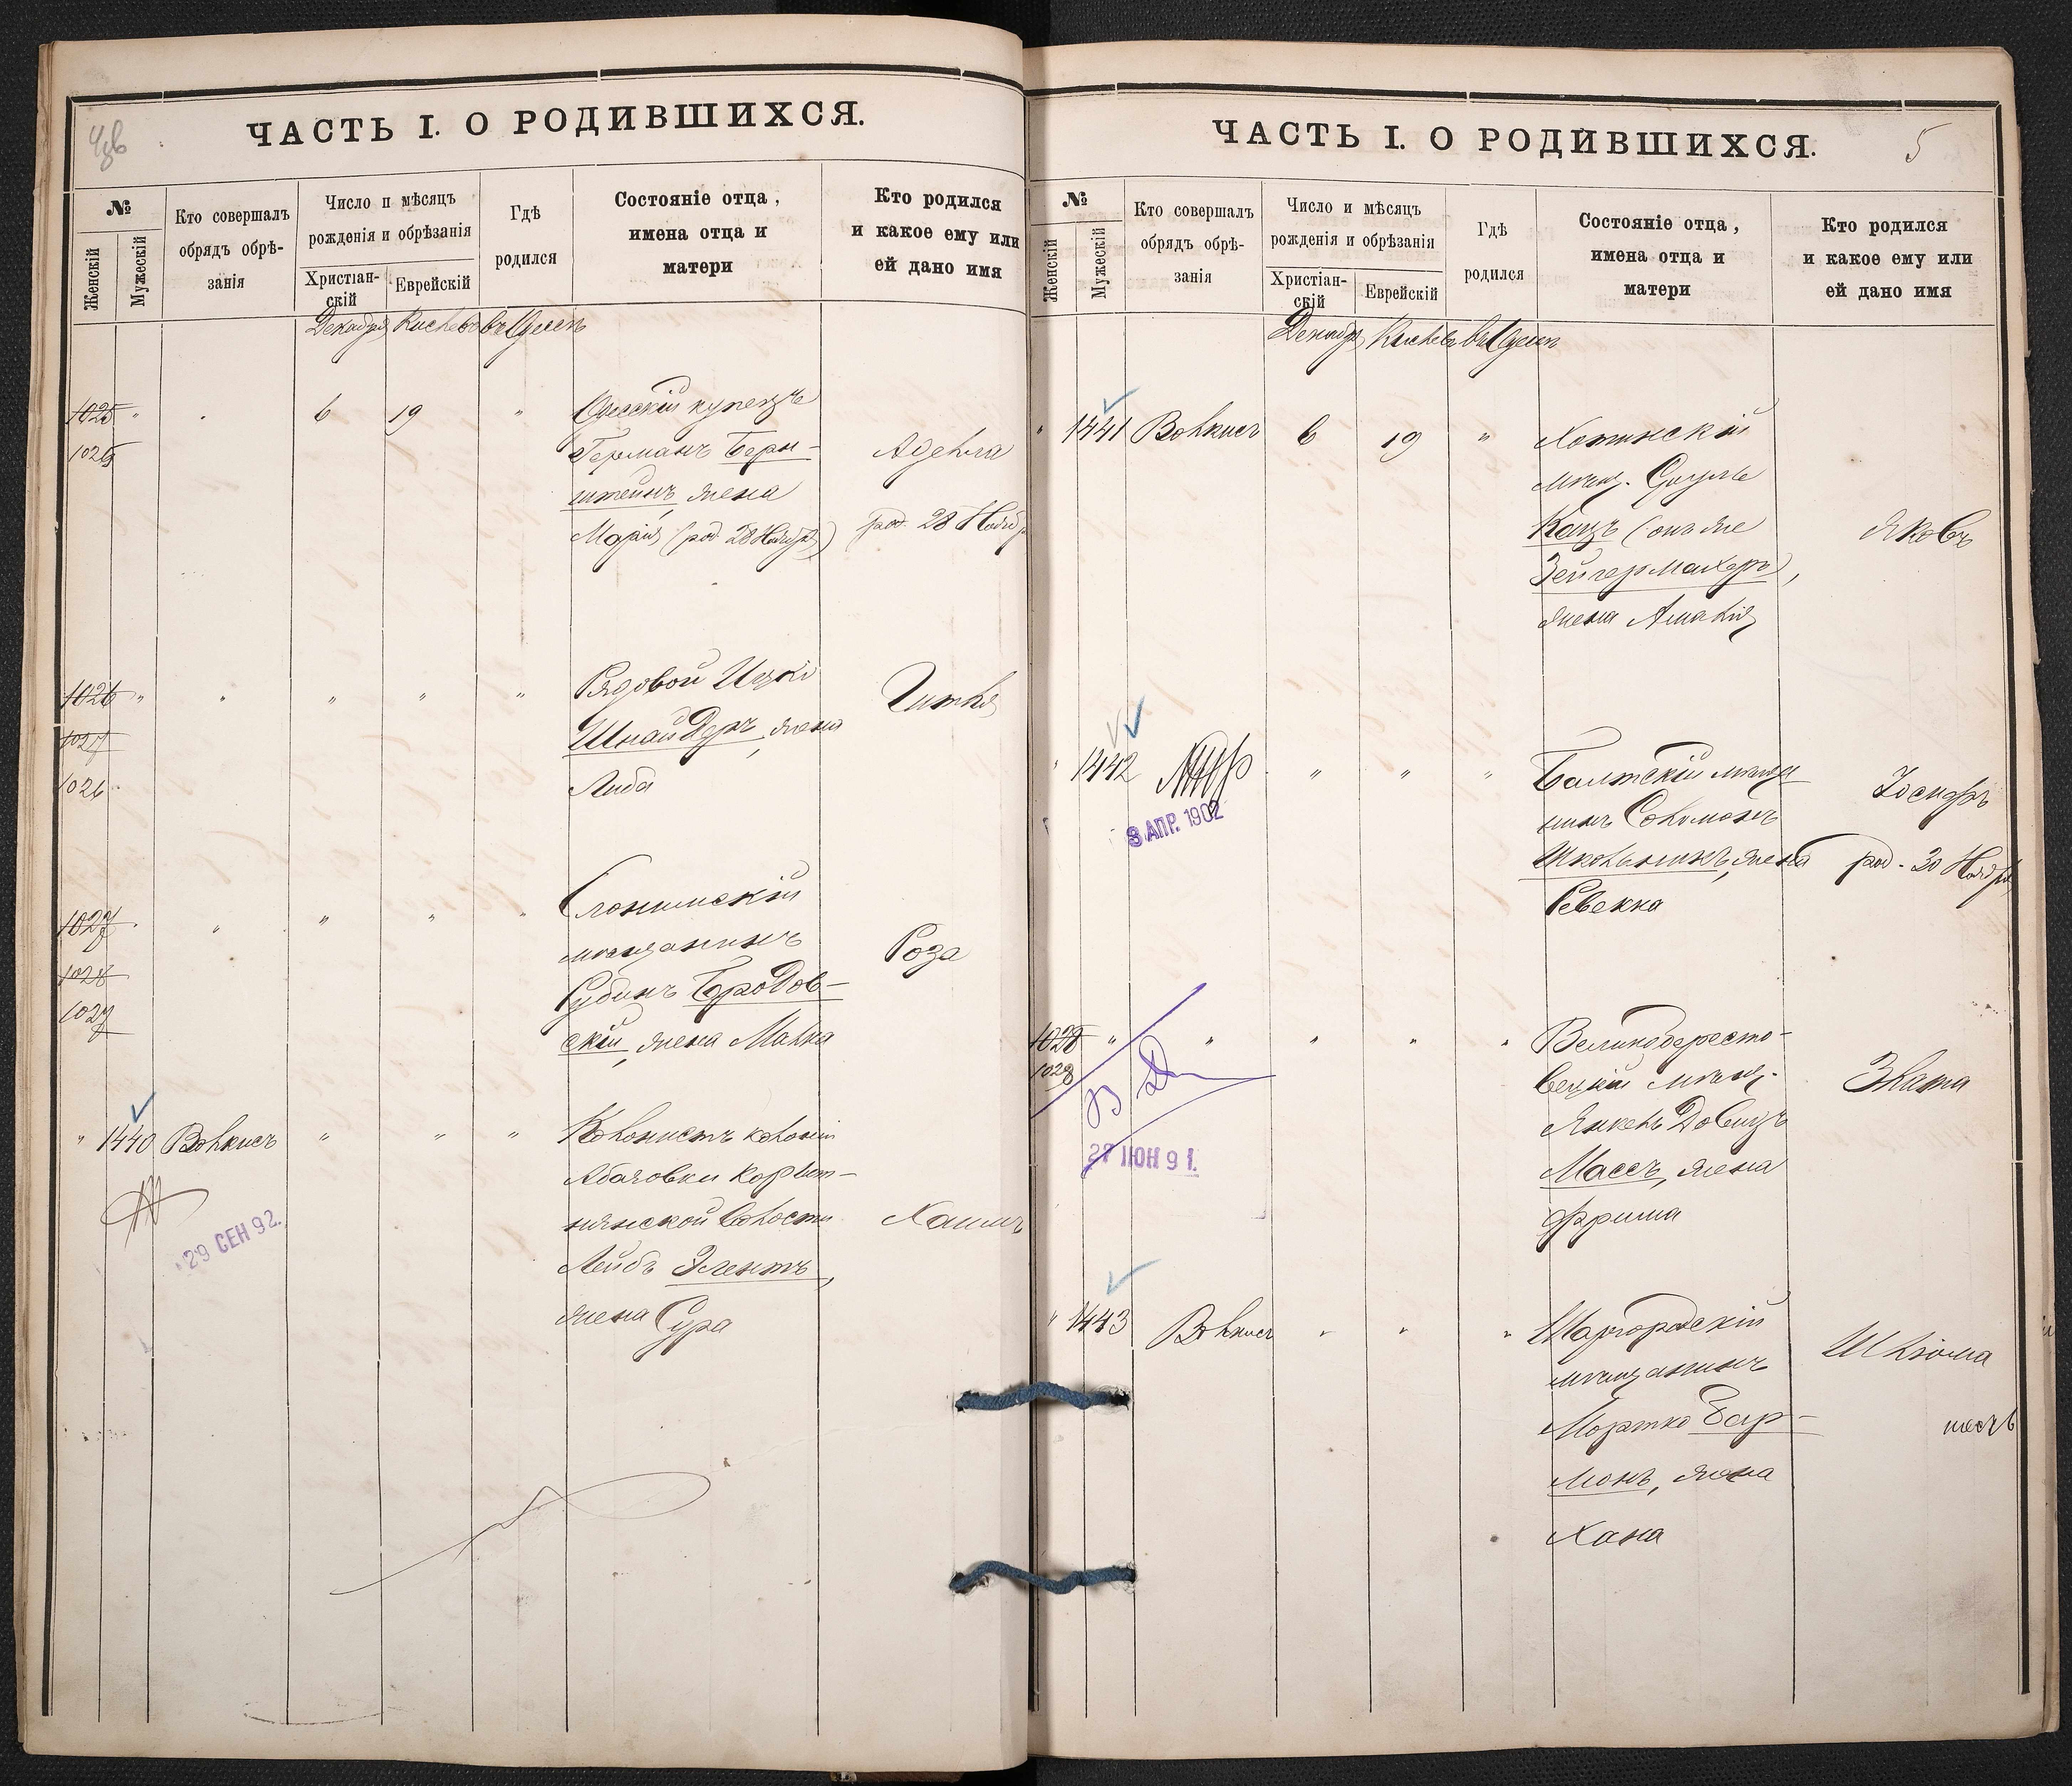 ЧАСТЬ I. О РОДИВШИХСЯ.
№
Женскій
Мужескій
Кто совершалъ
обрядъ обрѣ-
занія
Число и мѣсяцъ
рожденія и обрѣзанія
Христіан-
скій
Еврейскій
Гдѣ
родился
Состояніе отца,
имена отца и
матери
Кто родился
и какое ему или
ей дано имя
Декабря Кислевъ въ Одессѣ
1025 " 6 19 " Одесскій купецъ
1025 Германъ Берн-
штейнъ, жена
Марія (род 28 Ноября)
Адель
род. 28 Ноября
1026 " " " " Рядовой Ицко
1027 Шнайдеръ, жена
1026 Либа
Гитля
1027 " " " " Слонимскій
1028 мѣщанинъ
1027 Рубинъ Бродов-
скій, жена Малка
Роза
" 1440 Волкисъ " " " Колонистъ колоніи
Абазовки
волости
Лейбъ
жена Сура
Хаимъ
29 СЕН 92.
ЧАСТЬ I. О РОДИВШИХСЯ.
5
№
Женскій
Мужескій
Кто совершалъ
обрядъ обрѣ-
занія
Число и мѣсяцъ
рожденія и обрѣзанія
Христіан-
скій
Еврейскій
Гдѣ
родился
Состояніе отца,
имена отца и
матери
Кто родился
и какое ему или
ей дано имя
Декабря Кислевъ въ Одессѣ
" 1441 Волкисъ 6 19 " Хотинскій
мѣщ. Сруль
Кацъ (онъ же
Зейгермахеръ),
жена Амалія
Яковъ
" 1442 " " " Балтскій мѣща
нинъ Соломонъ
Школьникъ, жена
Ревекка
Іосифъ
род. 30 Ноября
8 АПР. 1902
1028 " " " " " Великобересто-
1028 вецкій мѣщ.
Янкель Довидъ
Массъ, жена
Фрима
Злата
27 ІЮН 91.
" 1443 Волкисъ " " " Шаргородскій
мѣщанинъ
Мортко Бар-
монъ, жена
Хана
Шлюма